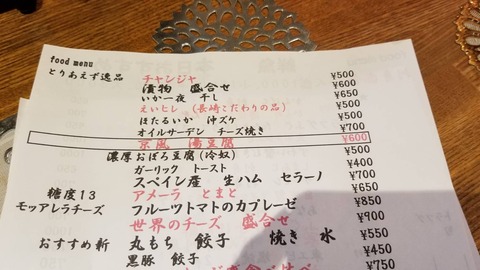 food menu
とりあえず逸品 チャンジャ ¥500
漬物 盛合せ ¥600
いか一夜 干し ¥650
えいヒレ (長崎こだわりの品) ¥500
ほたるいか 沖ヅケ ¥500
オイルサーデン チーズ焼き ¥700
京風 湯豆腐 ¥600
濃厚おぼろ豆腐(冷奴) ¥500
ガーリック トースト ¥400
スペイン産 生ハム セラーノ ¥700
糖度13 アメーラ とまと ¥650
モッアレラチーズ フルーツトマトのカプレーゼ ¥850
世界のチーズ 盛合せ ¥900
おすすめ新 丸もち 餃子 焼き 水 ¥550
黒豚 餃子 ¥450
¥750